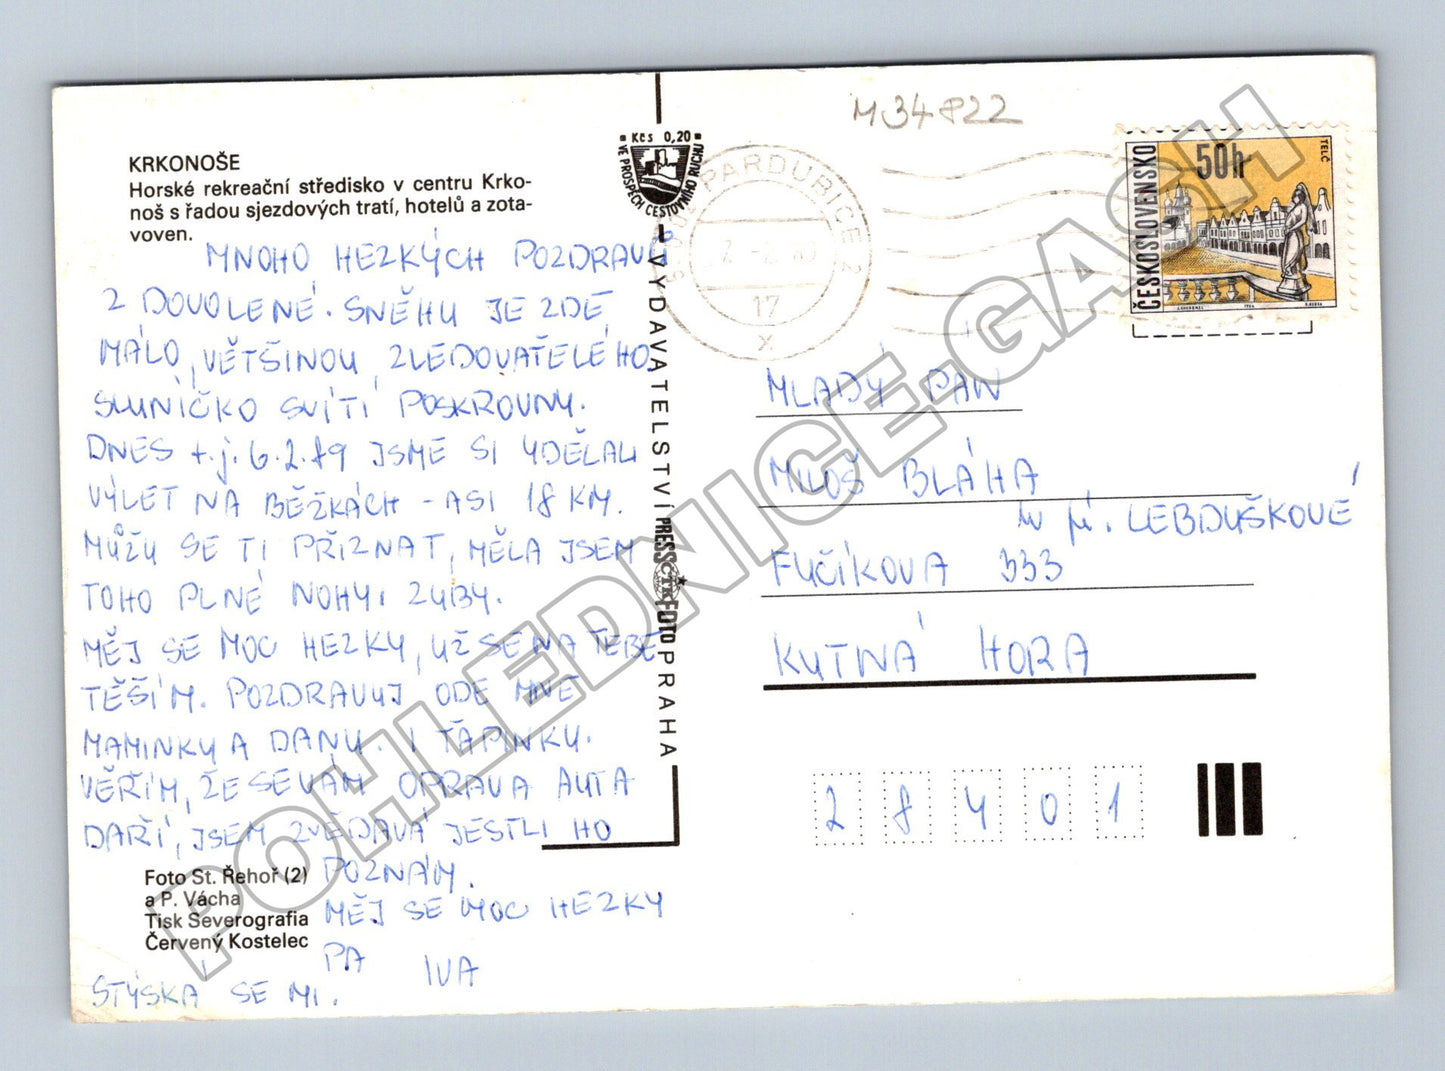 KRKONOŠE
Horské rekreační středisko v centru Krko-
noš s řadou sjezdových tratí, hotelů a zota-
voven.
MNOHO HEZKÝCH POZDRAVŮ
Z DOVOLENÉ. SNĚHU JE ZDE
MÁLO, VĚTŠINOU ZLEDOVATĚLÉHO,
SLUNÍČKO SVÍTÍ POSKROVNY.
DNES t.j. 6.2.89 JSME SI UDĚLALI
VÝLET NA BĚŽKÁCH - ASI 18 KM.
MŮŽU SE TI PŘIZNAT, MĚLA JSEM
TOHO PLNÉ NOHY I ZUBY.
MĚJ SE MOC HEZKY, UŽ SE NA TEBE
TĚŠÍM. POZDRAVUJ ODE MNE
MAMINKU A DANU. I TAPINKU.
VĚŘÍM, ŽE SE VÁM OPRAVA AUTA
DAŘÍ, JSEM ZVĚDAVÁ JESTLI HO
POZNÁM.
MĚJ SE MOC HEZKY
PA IVA
STÝSKÁ SE MI.
Foto St. Řehoř (2)
a P. Vácha
Tisk Severografia
Červený Kostelec
Kčs 0,20
VE PROSPĚCH CESTOVNÍHO RUCHU
VYDAVATELSTVÍ PRESSFOTO PRAHA
ČTK
M34822
PARDUBICE 2
17
x
ČESKOSLOVENSKO
50h
TELČ
MLADÝ PAN
MILOŠ BLÁHA
u pí. LEBDUŠKOVÉ
FUČÍKOVA 333
KUTNÁ HORA
28401
POHLEDNICE.GASH